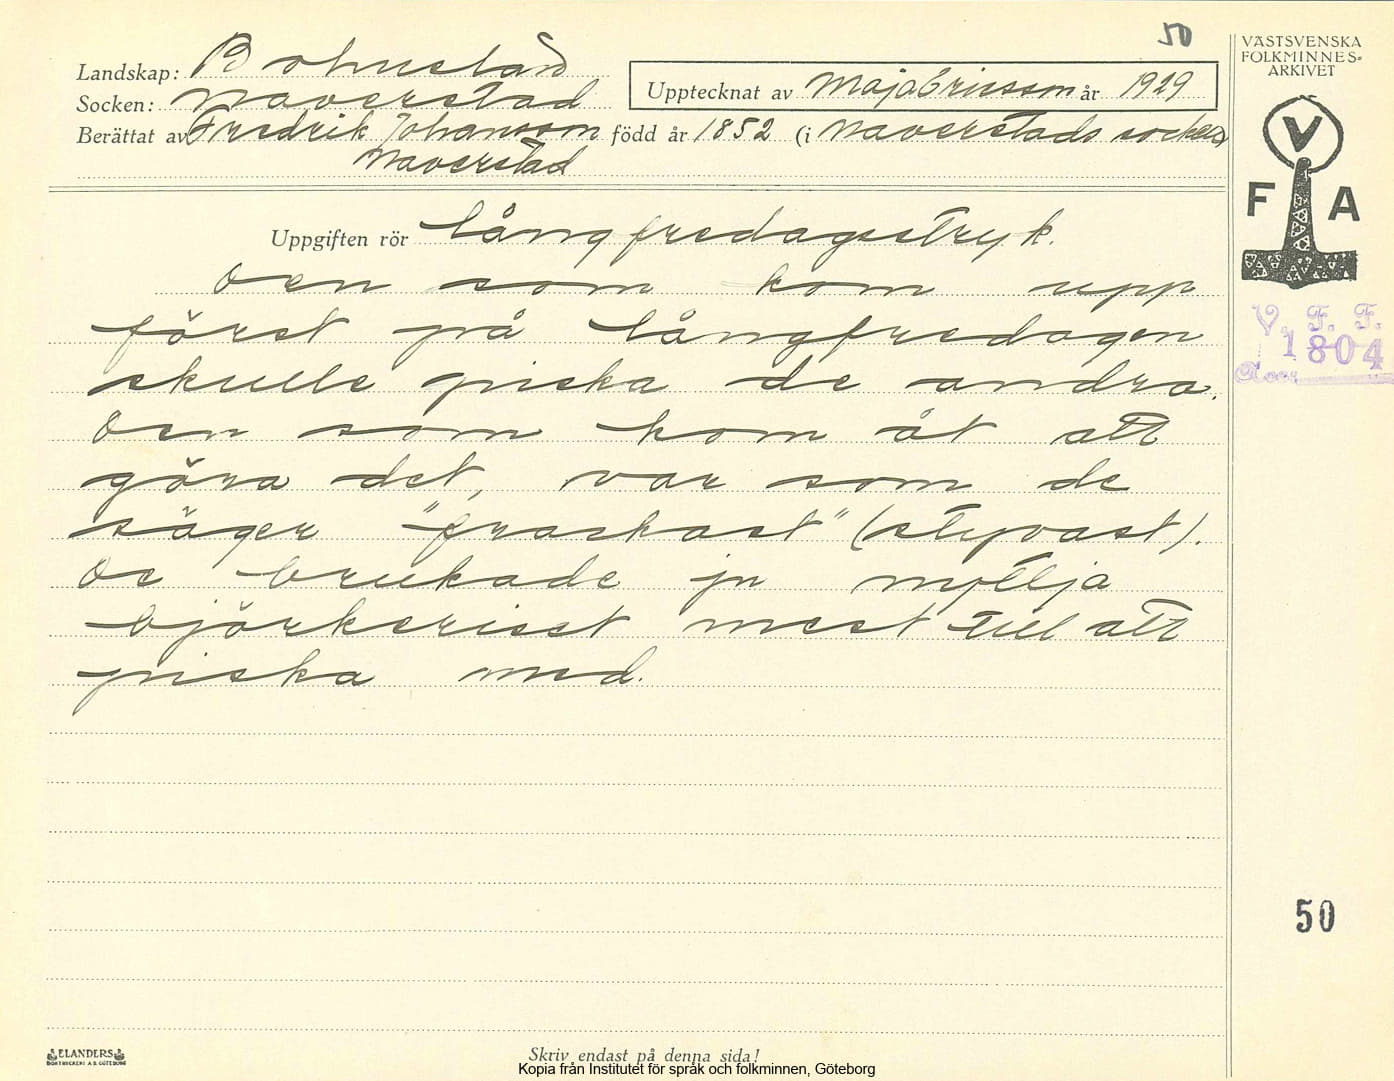 50
Landskap: Bohuslän
Socken: Naverstad
Upptecknat av Maja Ericsson år 1929
Berättat av Fredrik Johansson född år 1852 (i Naverstads socken)
Naverstad
VÄSTSVENSKA
FOLKMINNES-
ARKIVET
V
F A
V. F. F.
1804
Uppgiften rör Långfredagsstryk.
Den som kom upp
först på långfredagen
skulle piska de andra.
Den som kom åt att
göra det, var som de
säger "fraskast" (styvast).
De brukade ju nyttja
björkeriset mest till att
piska med.
50
ELANDERS
BOKTRYCKERI A.B. GÖTEBORG
Skriv endast på denna sida!
Kopia från Institutet för språk och folkminnen, Göteborg